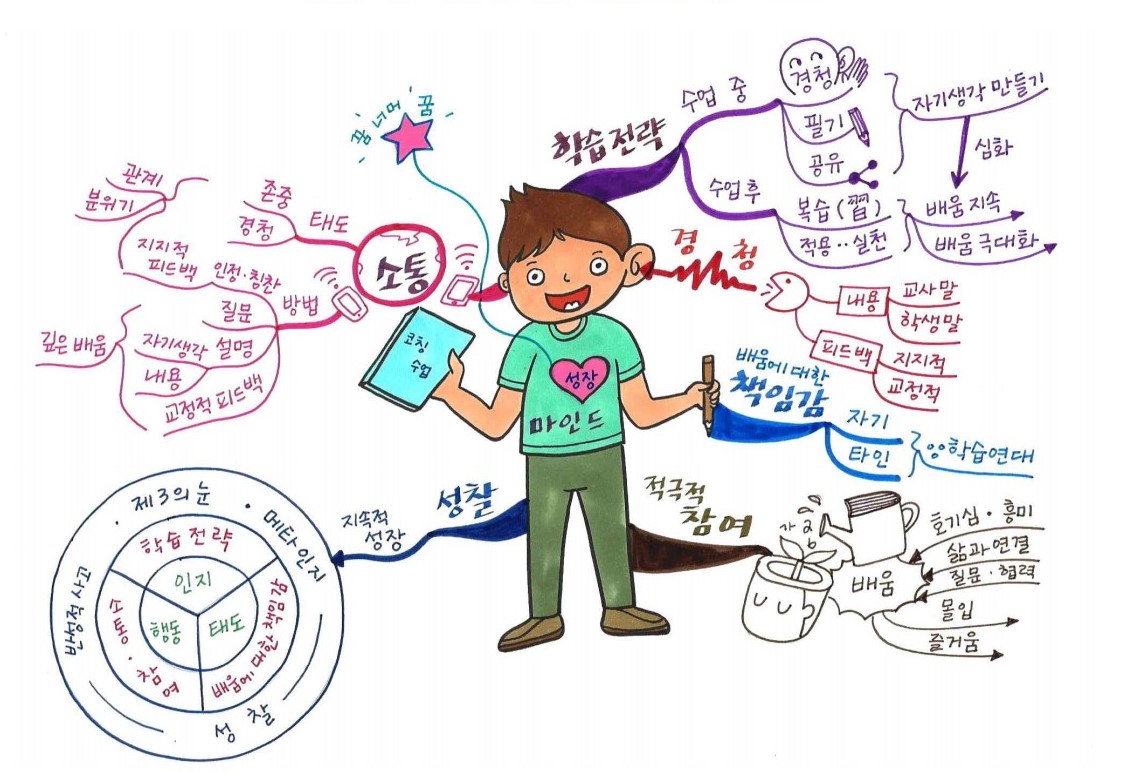 꿈 너머 꿈
학습전략
수업 중
경청
필기
공유
자기생각 만들기
심화
수업 후
복습 (習)
적용·실천
배움 지속
배움 극대화
경청
내용
교사 말
학생 말
피드백
지지적
교정적
배움에 대한
책임감
자기
타인
학습연대
적극적
참여
배움
호기심·흥미
삶과 연결
질문·협력
몰입
즐거움
성장
마인드
코칭
수업
소통
태도
존중
경청
방법
지지적
피드백
관계
분위기
인정·칭찬
질문
설명
자기생각
내용
교정적 피드백
깊은 배움
성찰
지속적
성장
제3의 눈
메타인지
성찰
반성적 사고
학습전략
배움에 대한 책임감
소통·참여
인지
태도
행동